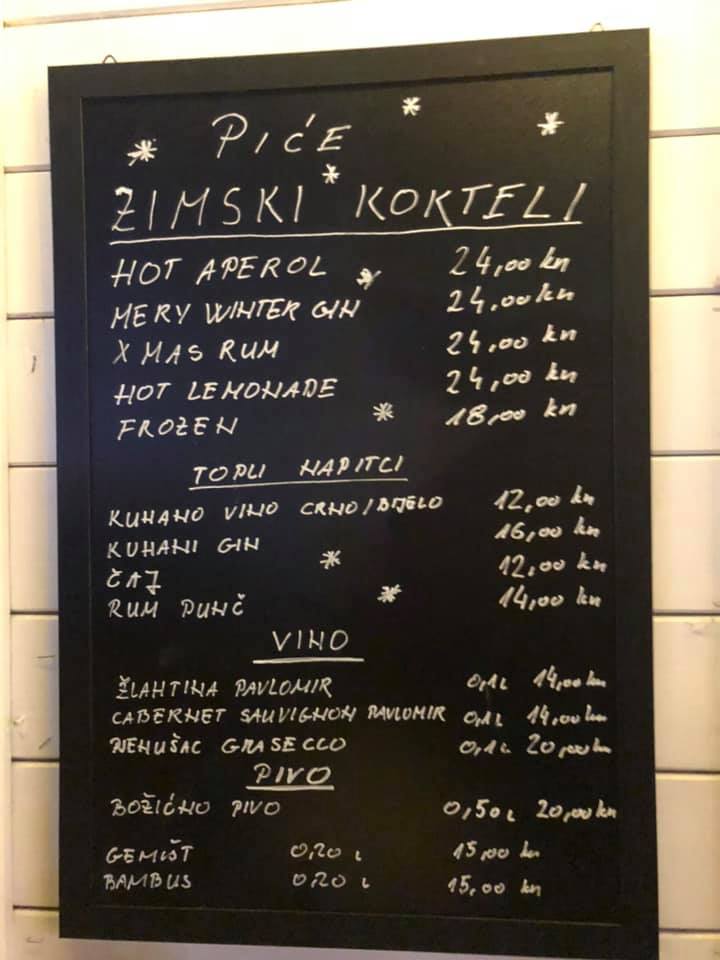 PIĆE
ZIMSKI KOKTELI
HOT APEROL 24,00 kn
MERY WINTER GIN 24,00 kn
X MAS RUM 24,00 kn
HOT LEMONADE 24,00 kn
FROZEN 18,00 kn
TOPLI NAPITCI
KUHANO VINO CRNO/BIJELO 12,00 kn
KUHANI GIN 16,00 kn
ČAJ 12,00 kn
RUM PUNČ 14,00 kn
VINO
ŽLAHTINA PAVLOMIR 0,1L 14,00 kn
CABERNET SAUVIGNON PAVLOMIR 0,1L 14,00 kn
0,1L 20,00 kn
PIVO
BOŽIĆNO PIVO 0,50L 20,00 kn
GEMIŠT 0,20 L 15,00 kn
BAMBUS 0,20 L 15,00 kn